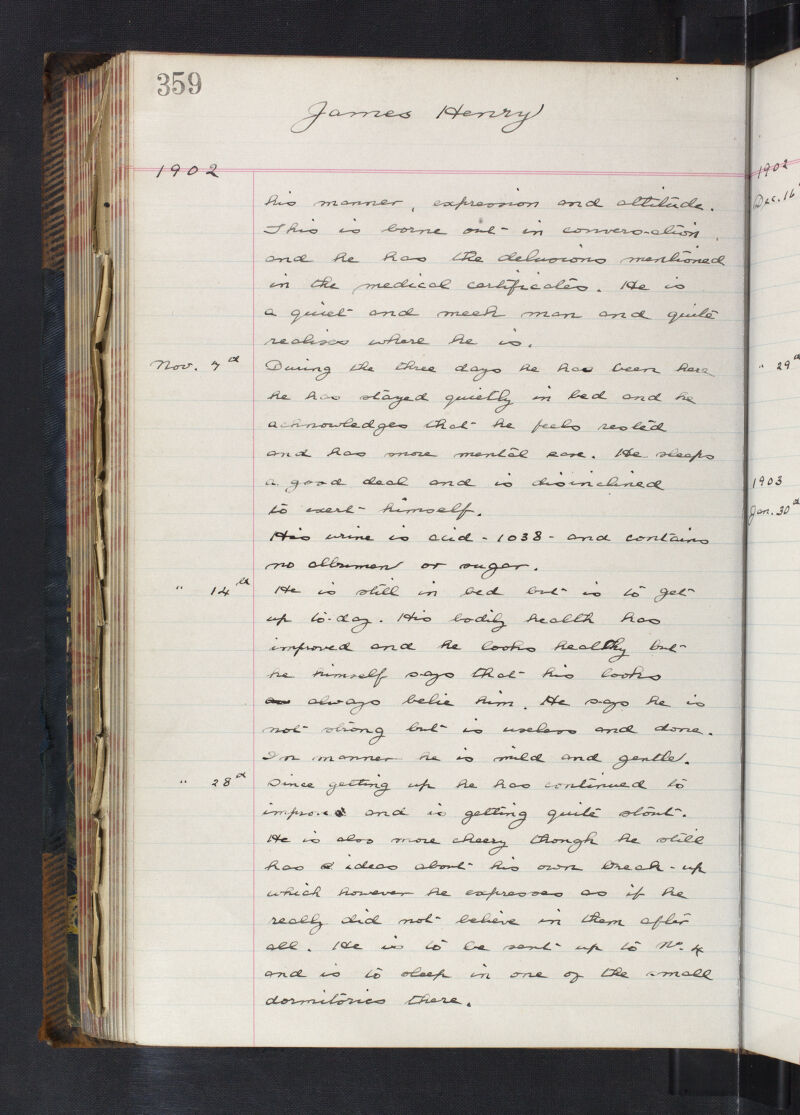 359
James Henry
1902
his manner, expression and attitude.
This is borne out in conversation,
and he has the delusions mentioned
in the medical certificates. He is
a quiet and meek man and quite
realises where he is.
Nov. 7d During the three days he has been here
he has stayed quietly in bed and he
acknowledges that he feels rested
and has more mental ease. He sleeps
a good deal and is disinclined
to exert himself.
His urine is acid - 1038 - and contains
no albumen or sugar.
" 14th He is still in bed but is to get
up to-day. His bodily health has
improved and he looks healthy but
he himself says that his looks
always belie him. He says he is
not strong but is useless and done.
In manner he is mild and gentle.
" 28d Since getting up he has continued to
improve and is getting quite stout.
He is also more cheery though he still
has ideas about his own break-up
which however he expresses as if he
really did not believe in them after
all. He is to be sent up to No. 4
and is to sleep in one of the small
dormitories there.
1902
Dec. 16
" 29d
1903
Jan. 30d